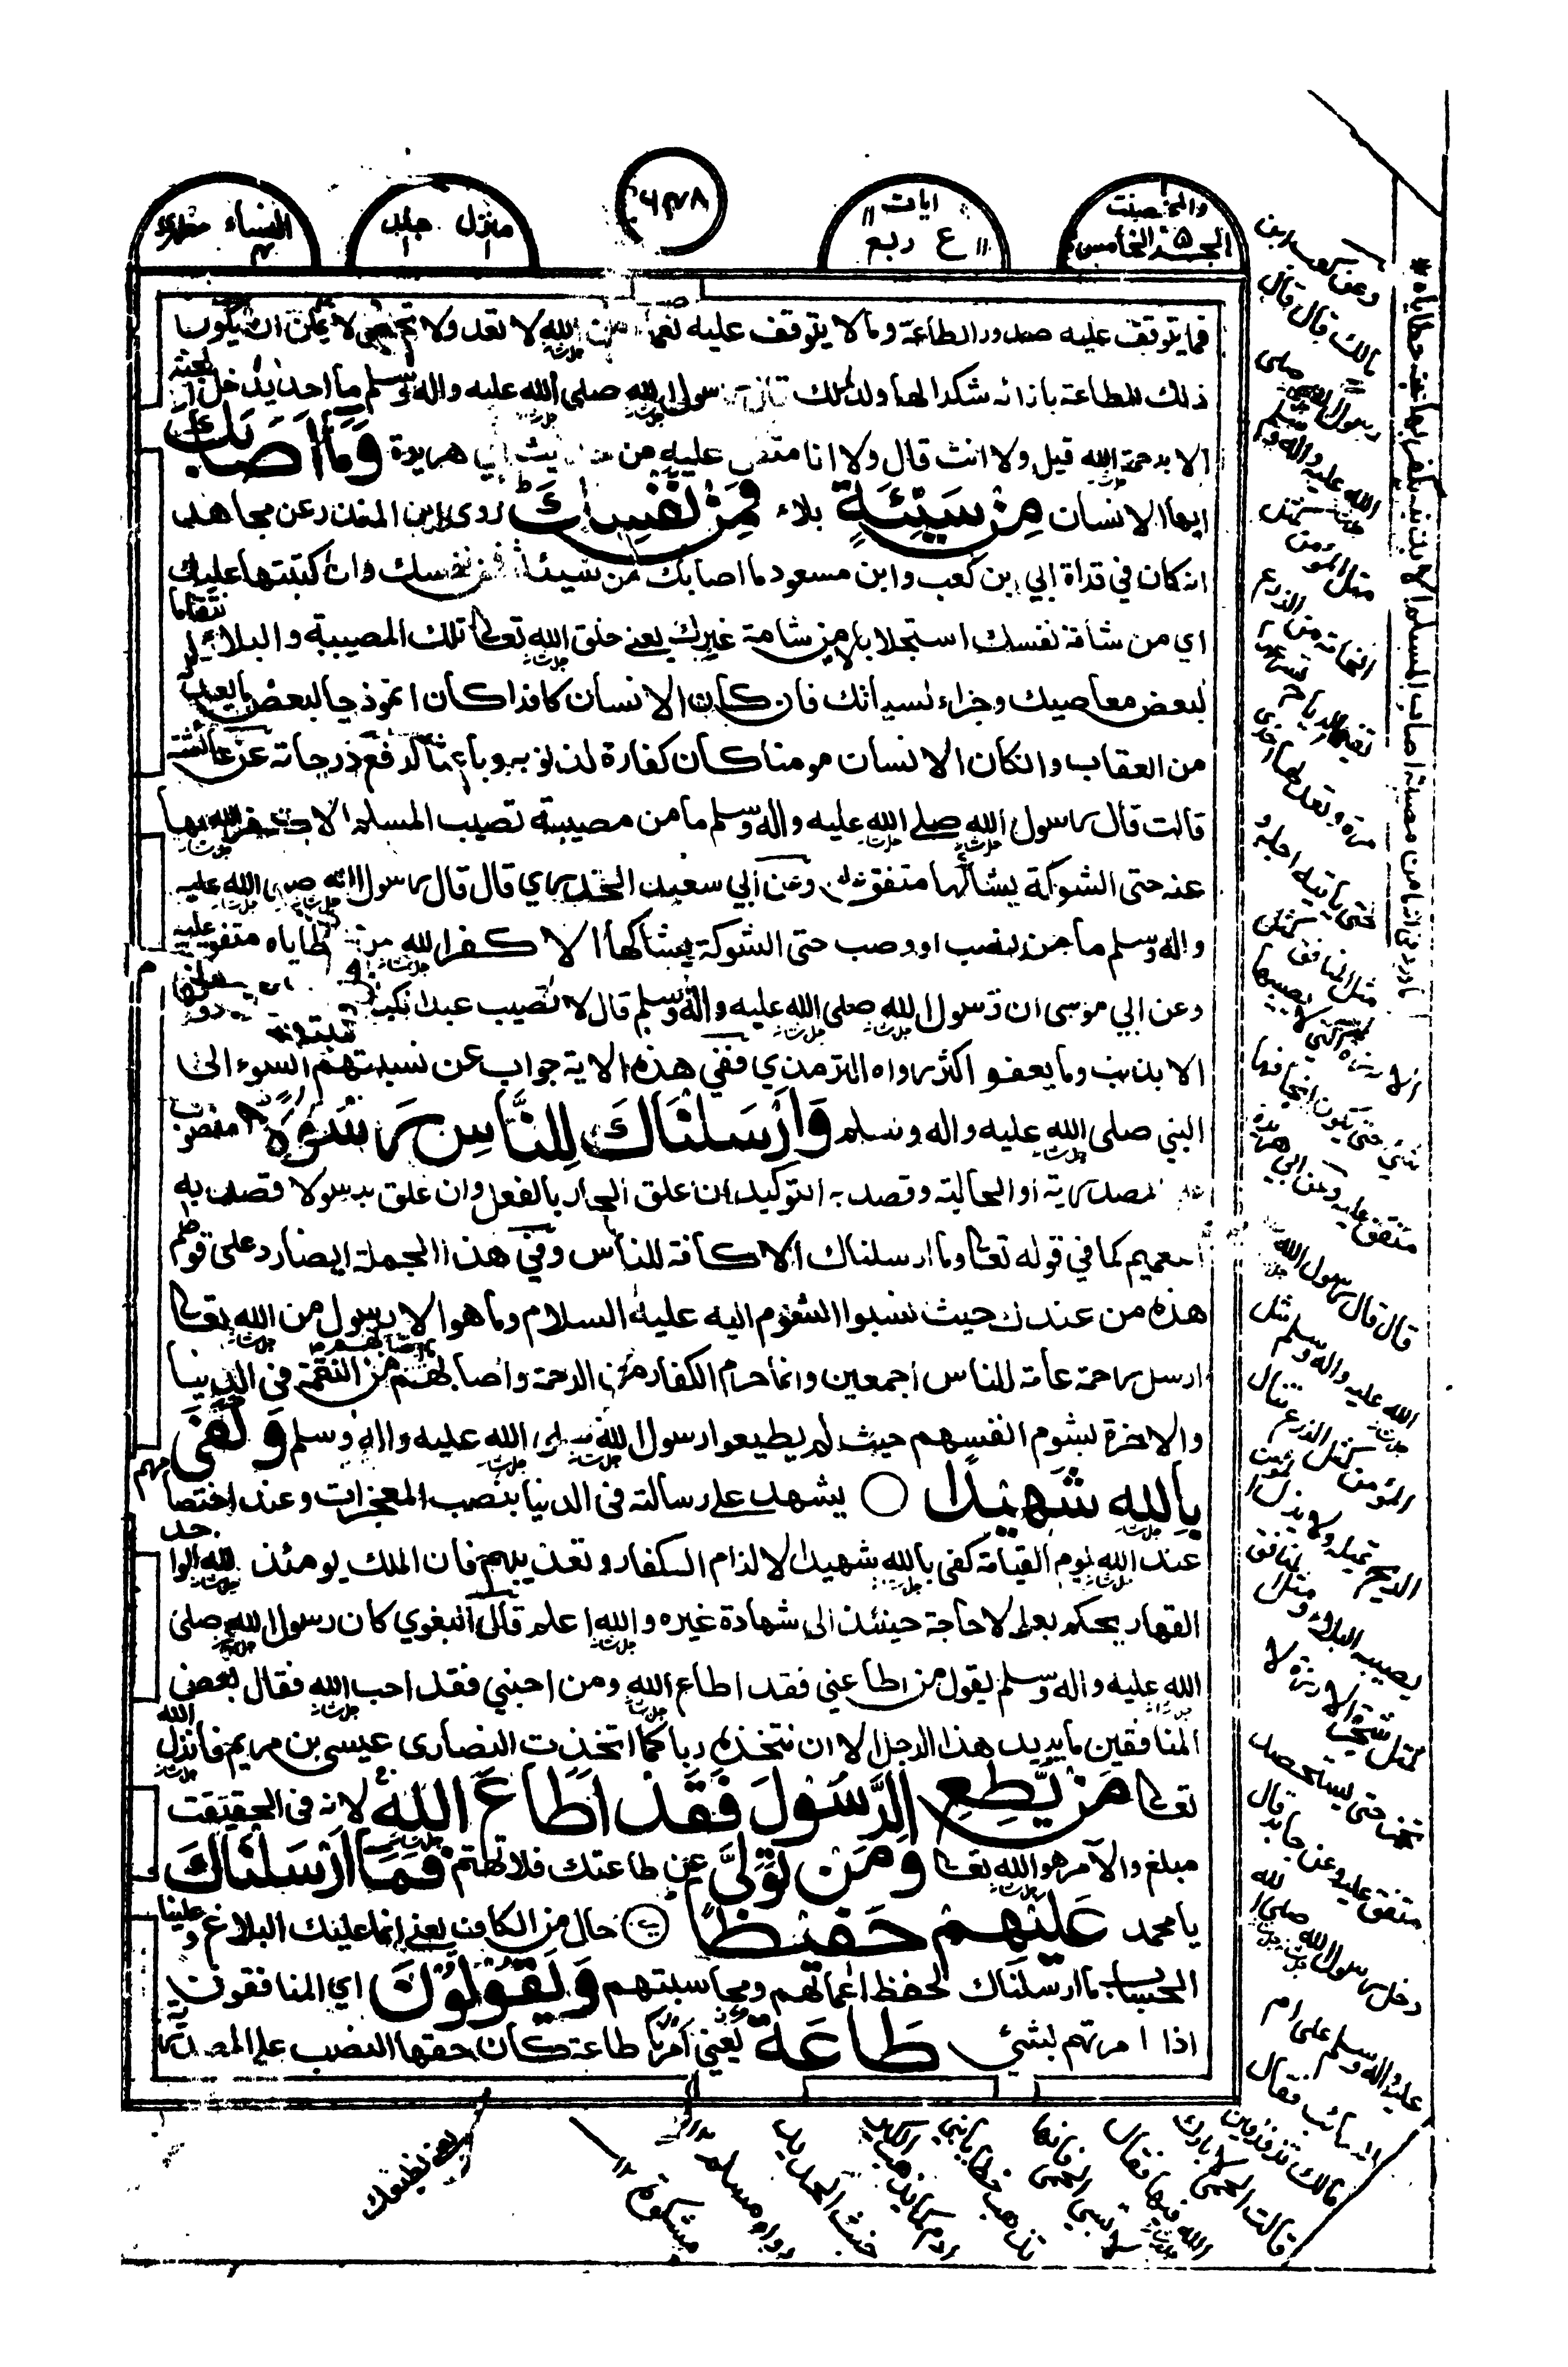 والمحصنت
الجزء الخامس ۵
ايات
ع ربع
منزل جلد
۱ ۱
النساء مظهري
۴
فما يتوقف عليه صدور الطاعة وما لا يتوقف عليه نعماء الله لا تعد ولا تحصى لا يمكن ان يكون
ذلك الطاعة بازائه شكرا لها ولذلك قال رسول الله صلى الله عليه واله وسلم ما احد يدخل الجنة
الا برحمة الله قيل ولا انت قال ولا انا متفق عليه من حديث ابي هريرة وَمَا اَصَابَكَ
ايها الانسان مِنْ سَيِّئَةٍ بلاء فَمِنْ نَفْسِكَ روى ابن المنذر عن مجاهد
انه كان في قراة ابي بن كعب وابن مسعود ما اصابك من سيئة فمن نفسك وانا كتبتها عليك
اي من شأمة نفسك استجلابا من شامة غيرك يعني خلق الله تعالى تلك المصيبة والبلاء انتقاما
لبعض معاصيك وجزاء لسيأتك فان كان الانسان كافرا كان انموذجا لبعض ما يعد له
من العقاب وان كان الانسان مومنا كان كفارة لذنوبه وباعثا لرفع درجاته عن عائشة
قالت قال رسول الله صلى الله عليه واله وسلم ما من مصيبة تصيب المسلم الا كفر الله بها
عنه حتى الشوكة يشاكها متفق عليه وعن ابي سعيد الخدري قال قال رسول الله صلى الله عليه
واله وسلم ما من نصب او وصب حتى الشوكة يشاكها الا كفر الله من خطاياه متفق عليه
وعن ابي موسى ان رسول الله صلى الله عليه واله وسلم قال لا تصيب عبدا نكبة
الا بذنب وما يعفو اكثر رواه الترمذي ففي هذه الاية جواب عن نسبتهم السوء الى
النبي صلى الله عليه واله وسلم وَاَرْسَلْنَاكَ لِلنَّاسِ رَسُوْلًا منصوب
على المصدرية او الحالية وقصد به التوكيد ان علق الجار بالفعل وان علق برسولا قصد به
التعميم كما في قوله تعالى وما ارسلناك الا كافة للناس وفي هذا الجملة ايضا رد على قولهم
هذه من عندك حيث نسبوا الشؤم اليه عليه السلام وما هو الا رسول من الله تعالى
ارسل رحمة عامة للناس اجمعين وانما حرم الكفار من الرحمة واصابهم ما اصابهم من النقمة في الدنيا
والاخرة لشوم انفسهم حيث لم يطيعوا رسول الله صلى الله عليه واله وسلم وَكَفٰى
بِاللهِ شَهِيْدًا ○ يشهد على رسالته في الدنيا بنصب المعجزات وعند اختصام
عند الله يوم القيامة كفى بالله شهيدا لالزام الكفار وتعذيبهم فان الملك يومئذ لله الواحد
القهار يحكم بعلمه لا حاجة حينئذ الى شهادة غيره والله اعلم قال البغوي كان رسول الله صلى
الله عليه واله وسلم يقول من اطاعني فقد اطاع الله ومن احبني فقد احب الله فقال بعض
المنافقين ما يريد هذا الرجل الا ان نتخذه ربا كما اتخذت النصارى عيسى بن مريم فانزل الله
تعالى مَنْ يُّطِعِ الرَّسُوْلَ فَقَدْ اَطَاعَ اللهَ لانه في الحقيقة
مبلغ والآمر هو الله تعالى وَمَنْ تَوَلّٰى عن طاعتك فلا تهتم فَمَا اَرْسَلْنَاكَ
يا محمد عَلَيْهِمْ حَفِيْظًا حال من الكاف يعني انما عليك البلاغ وعلينا
الحساب ما ارسلناك لحفظ اعمالهم ومحاسبتهم وَيَقُوْلُوْنَ اي المنافقون
اذا امرتهم بشئ طَاعَةٌ يعني امرنا طاعة كان حقها النصب على المصدرية
مالك قال قال
رسول الله صلى
الله عليه واله وسلم
مثل المؤمن كمثل
الخامة من الزرع
تفيئها الرياح
مرة وتعدلها اخرى
حتى ياتيه اجله و
مثل المنافق كمثل
الارزة التي لا يصيبها
شئ حتى يكون انجعافها
متفق عليه وعن ابي هريرة
قال قال رسول الله
الله عليه واله وسلم مثل
المؤمن كمثل الزرع لا تزال
الريح تميله ولا يزال المؤمن
يصيبه البلاء ومثل المنافق
كمثل شجرة الارزة لا
تهتز حتى تستحصد
متفق عليه وعن جابر قال
دخل رسول الله صلى الله
عليه واله وسلم على ام
السائب فقال
مالك تزفزفين
قالت الحمى لا بارك
الله فيها فقال
لا تسبي الحمى فانها
تذهب خطايا بني
ادم كما يذهب الكير
خبث الحديد
رواه مسلم
مشكوة ۱۲